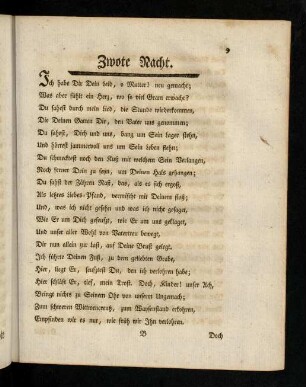 9
Zwote Nacht.
Ich habe Dir Dein Leid, o Mutter! neu gemacht;
Was aber fühlt ein Herz, wo so viel Gram erwacht?
Du sahest durch mein Lied, die Stunde wiederkommen,
Die Deinen Gatten Dir, den Vater uns genommen;
Du sahest, Dich und uns, bang um Sein Lager stehn,
Und hörest jammervoll uns um Sein Leben flehn;
Du schmecktest noch den Kuß mit welchem Sein Verlangen,
Noch ferner Dein zu seyn, um Deinen Hals gehangen;
Du sahst der Zähren Naß, das, als es sich ergoß,
Als letztes Liebes-Pfand, vermischt mit Deinem floß;
Und, was ich nicht gesehn und was ich nicht geklaget,
Wie Er um Dich geseufzt, wie Er um mich gefraget,
Und unser aller Wohl von Vatertreu bewegt,
Dir nun allein zur Last, auf Deine Brust gelegt.
Ich führte Deinen Fuß, zu dem geliebten Grabe,
Hier, liegt Er, seufztest Du, den ich verlohren habe;
Hier schläft Er, rief, mein Trost. Doch, Kinder! unser Ach,
Bringe nichts zu Seinem Ohr von unserm Ungemach;
Zum schweren Wittwencreutz, zum Waysenstand erkohren,
Empfinden wir es nur, wie früh wir Ihn verlohren.
B
Doch